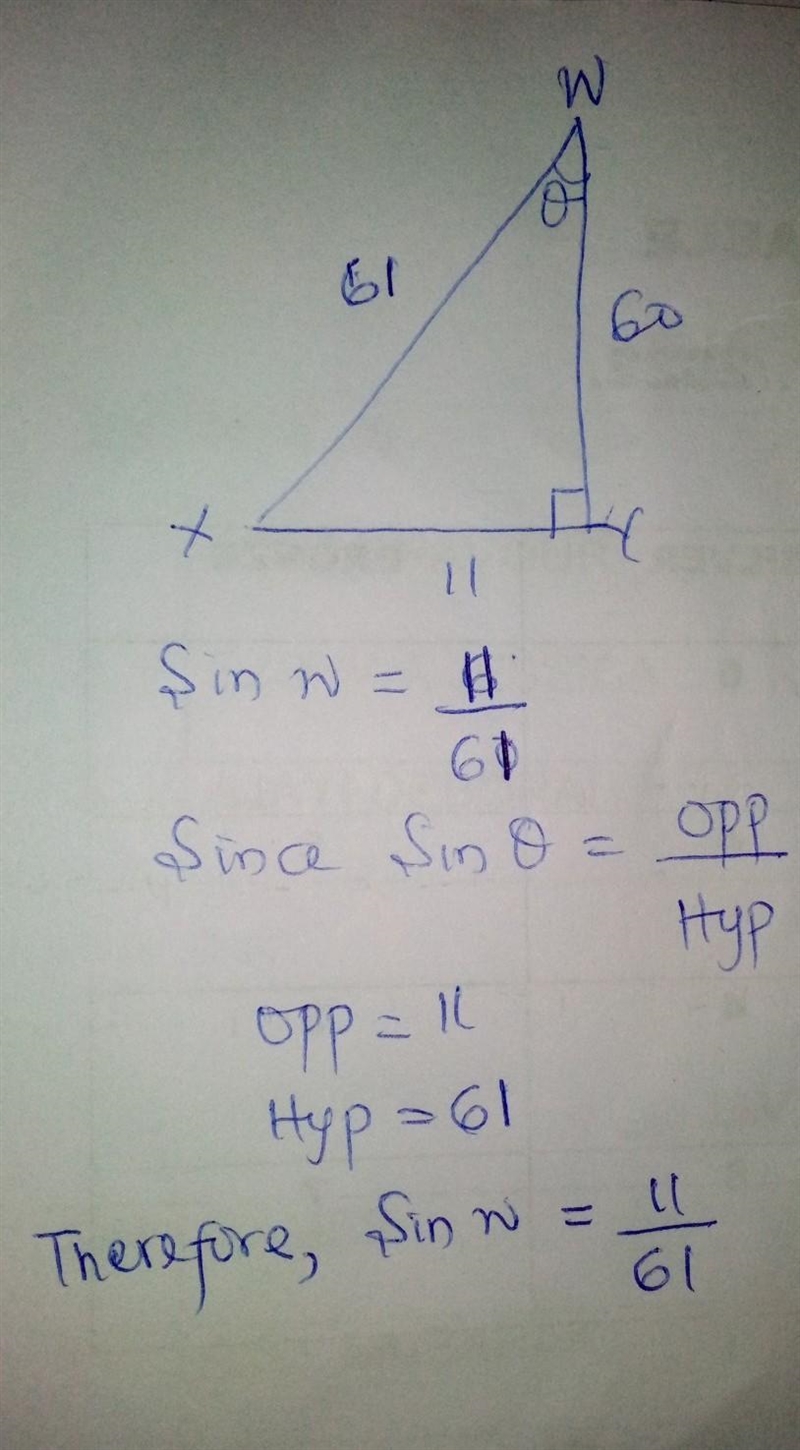 W
θ
61
60
X
Y
11
Sin W = 11/61
Since Sin θ = Opp/Hyp
Opp = 11
Hyp = 61
Therefore, Sin W = 11/61